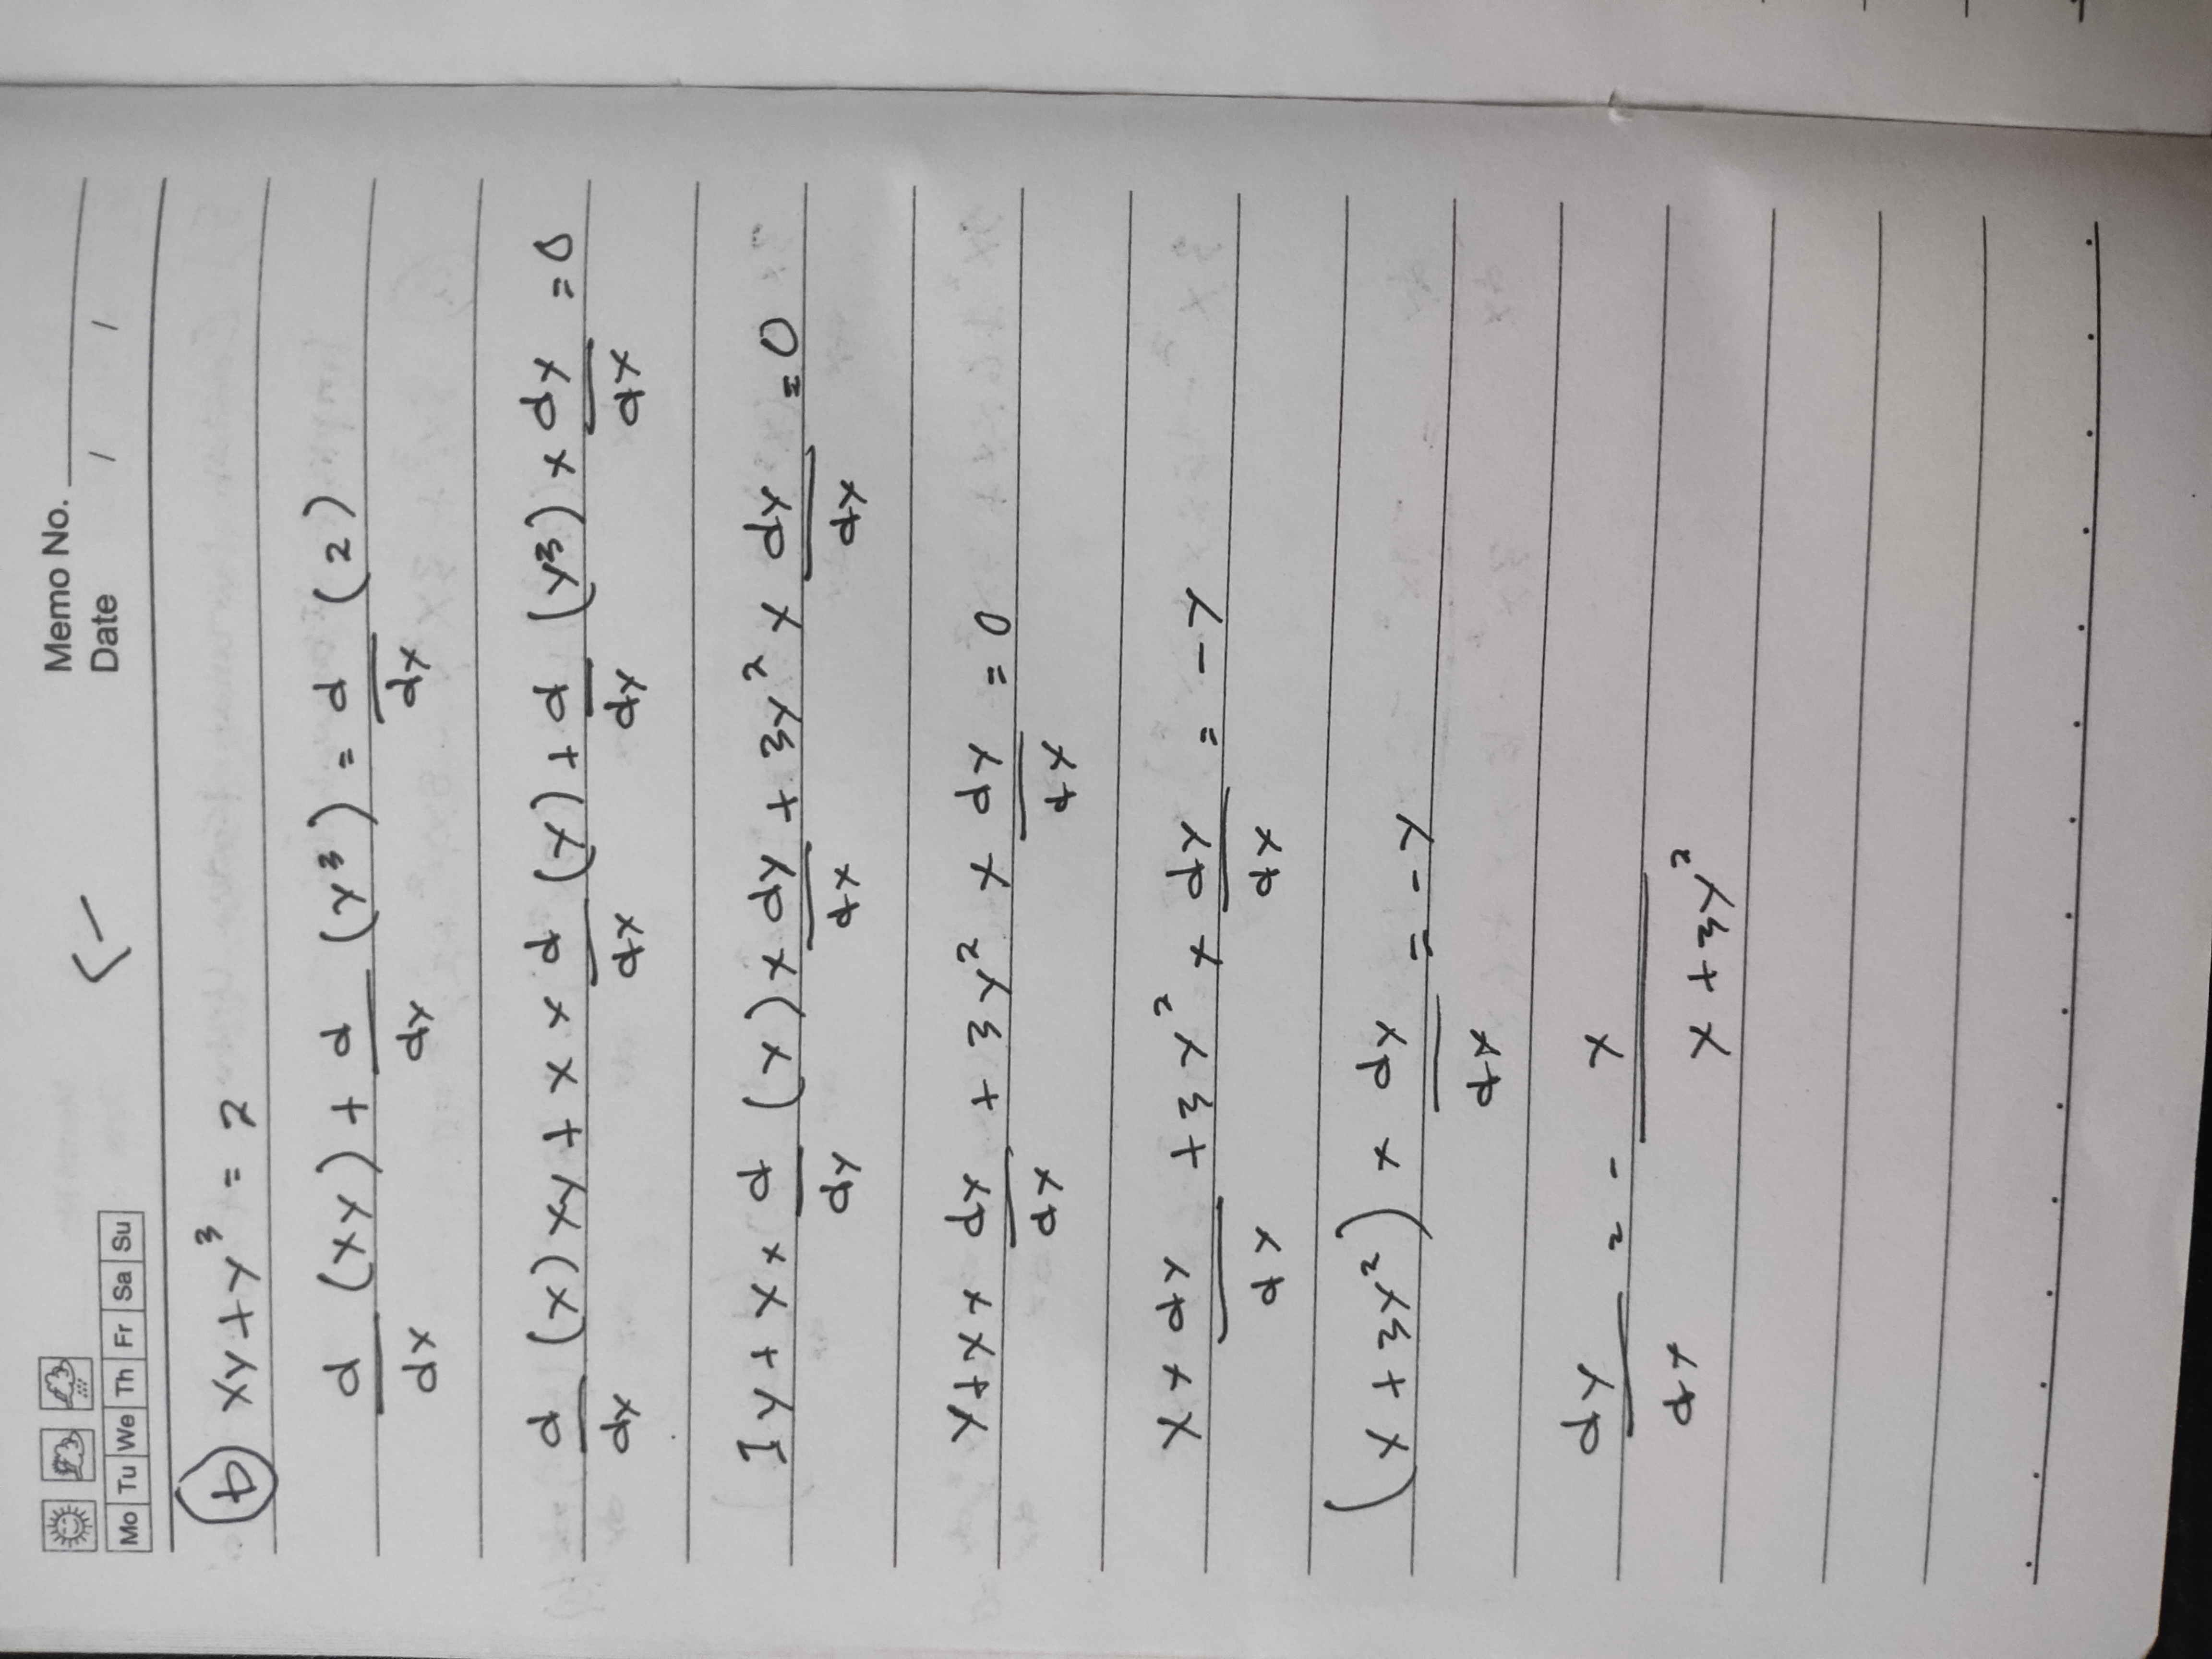 Memo No.
Mo Tu We Th Fr Sa Su
Date / /
b xy + y³ = 2
d/dx (xy) + d/dy (y³) = d/dx (2)
d/dx (x) x y + x x d/dx (y) + d/dy (y³) x dy/dx = 0
1y + x x d/dy (y) x dy/dx + 3y² x dy/dx = 0
y + x x dy/dx + 3y² x dy/dx = 0
x x dy/dx + 3y² x dy/dx = -y
(x + 3y²) x dy/dx = -y
dy/dx = - y/x + 3y²